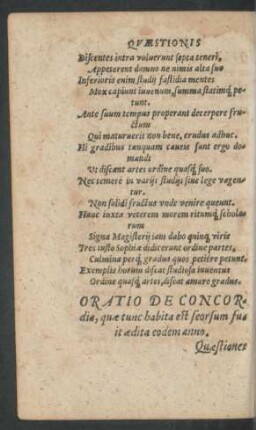 QVÆSTIONIS
Discentes intra voluerunt septa teneri,
Appeterent damno ne nimis alta suo
Inferioris enim studij fastidia mentes
Mox capiunt iuuenum, summa statimq́; pe
tunt.
Ante suum tempus properant decerpere fru
ctum
Qui maturuerit non bene, crudus adhuc.
Hi gradibus tanquam caueis sunt ergo do
mandi
Vt discant artes ordine quasq́; suo.
Nec temerè in varijs studijs sine lege vagen
tur.
Non solidi fructus vnde venire queunt.
Hunc iuxta veterem morem ritumq́; schola
rum
Signa Magisterij iam dabo quinq; viris
Tres iusto Sophiæ didicerunt ordine partes,
Culmina perq́; gradus quos petiere petunt.
Exemplis horum discat studiosa iuuentus
Ordine quasq́; artes, discat amare gradus.
ORATIO DE CONCOR-
dia, quæ tunc habita est seorsum fu
it ædita eodem anno.
Quæstiones